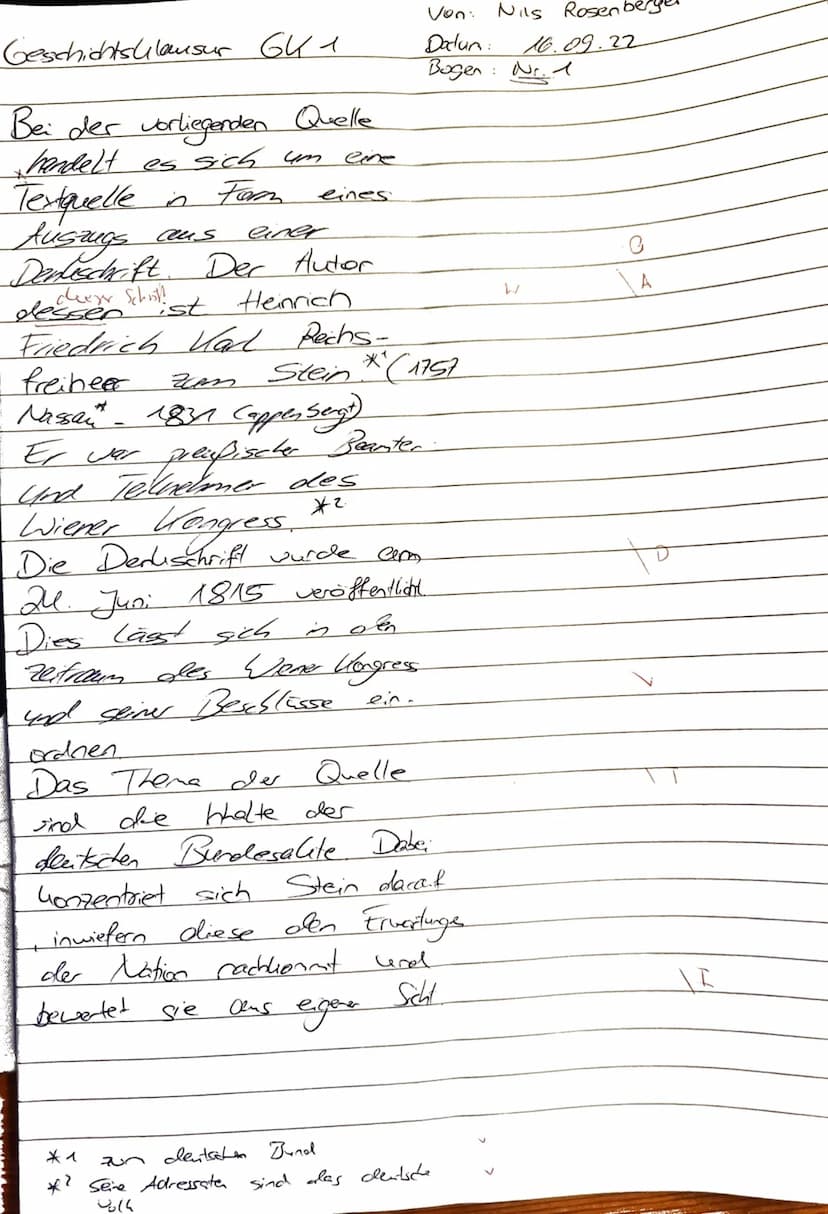 Von: Nils Rosenberger
Geschichtsklausur GK 1
Datum: 16.09.22
Bogen: Nr. 1
Bei der vorliegenden Quelle
handelt es sich um eine
Textquelle in Form eines
Auszugs aus einer
G
Denkschrift. Der Autor
A
dieser Schrift!
W
dessen ist Heinrich
Friedrich Karl Reichs-
freiherr zum Stein *1 (1757
Nassau* - 1831 Cappenberg†)
Er war preußischer Beamter
und Teilnehmer des
Wiener Kongress. *2
Die Denkschrift wurde am
D
24. Juni 1815 veröffentlicht.
Dies lässt sich in den
Zeitraum des Wiener Kongress
und seiner Beschlüsse ein-
ordnen
Das Thema der Quelle
T
sind die Inhalte der
deutschen Bundesakte. Dabei
konzentriet sich Stein darauf
, inwiefern diese den Erwartunge
der Nation nachkommt und
I
bewertet sie aus eigener Sicht.
*1 zum deutschen Bund
*2 Seine Adressaten sind das deutsche
Volk